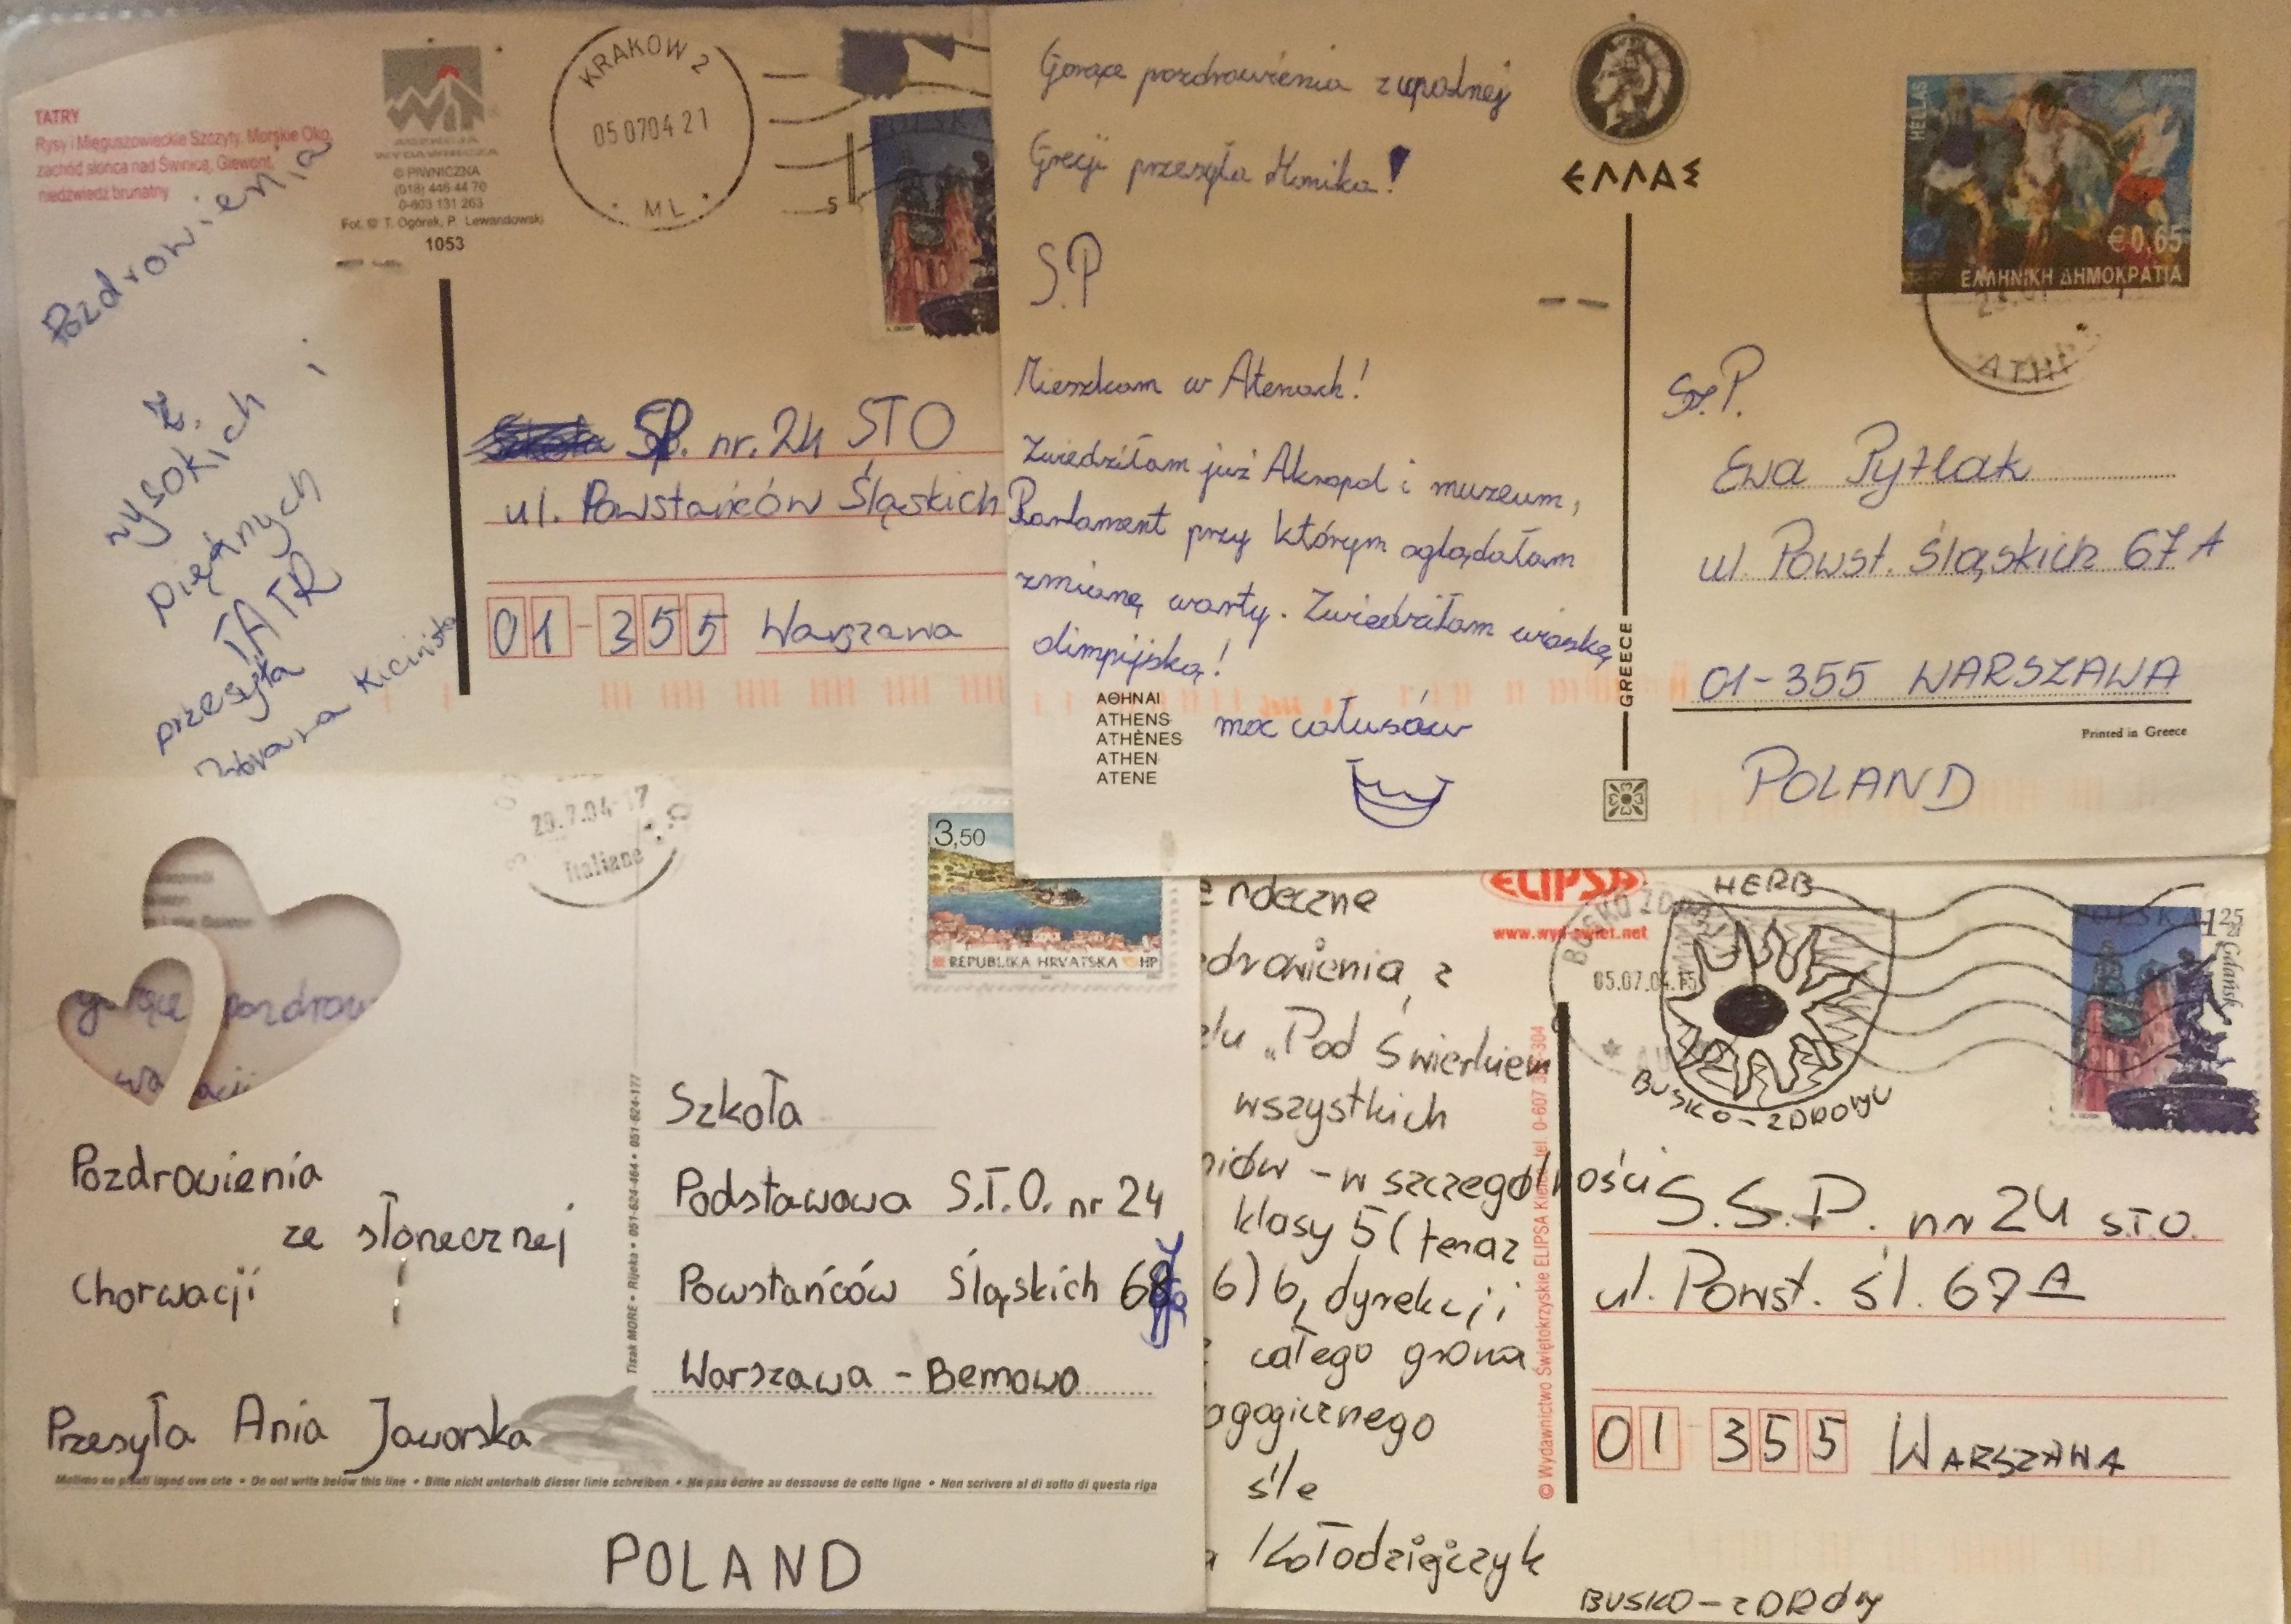 TATRY
Rysy i Mięguszowieckie Szczyty, Morskie Oko,
zachód słońca nad Świnicą, Giewont,
niedźwiedź brunatny
AGENCJA
WYDAWNICZA
© PIWNICZNA
(018) 446 44 70
0-603 131 263
Fot. © T. Ogórek, P. Lewandowski
1053
KRAKOW 2
05 0704 21
ML
5
Pozdrowienia
z
wysokich i
pięknych
TATR
przesyła
Kicińska
SP. nr. 24 STO
ul. Powstańców Śląskich
01-355 Warszawa
Gorące pozdrowienia z upalnej
Grecji przesyła Monika!
S.P
Mieszkam w Atenach!
Zwiedziłam już Akropol i muzeum,
Parlament przy którym oglądałam
zmianę warty. Zwiedziłam wioskę
olimpijską!
moc całusów
ΑΘΗΝΑΙ
ATHENS
ATHÈNES
ATHEN
ATENE
ΕΛΛΑΣ
GREECE
HELLAS
€0,65
ΕΛΛΗΝΙΚΗ ΔΗΜΟΚΡΑΤΙΑ
Sz.P.
Ewa Pytlak
ul. Powst. Śląskich 67A
01-355 WARSZAWA
Printed in Greece
POLAND
29.7.04-17
Italiane
3,50
REPUBLIKA HRVATSKA HP
gorące pozdrow
wa acji
Pozdrowienia
ze słonecznej
Chorwacji
Przesyła Ania Jaworska
Tisak MORE • Rijeka • 051-624-464 • 051-624-177
Szkoła
Podstawowa S.T.O. nr 24
Powstańców Śląskich
Warszawa - Bemowo
Molimo ne pisati ispod ove crte • Do not write below this line • Bitte nicht unterhalb dieser linie schreiben • Ne pas écrire au dessouse de cette ligne • Non scrivere al di sotto di questa riga
POLAND
erdeczne
zdrowienia z
elu „Pod Świerkiem
wszystkich
niów - w szczególności
klasy 5 (teraz
6) b, dyrekcji
całego grona
agogicznego
śle
a Kołodziejczyk
ELIPSA
www.wyd-swiet.net
© Wydawnictwo Świętokrzyskie ELIPSA Kielce, tel. 0-607
BUSKO ZDRÓJ
05.07.04.15
HERB
BUSKO-ZDROJU
POLSKA 1 25 zł
Gdańsk
S.S.P. nr 24 STO.
ul. Powst. śl. 67A
01 355 WARSZAWA
BUSKO-ZDRÓJ